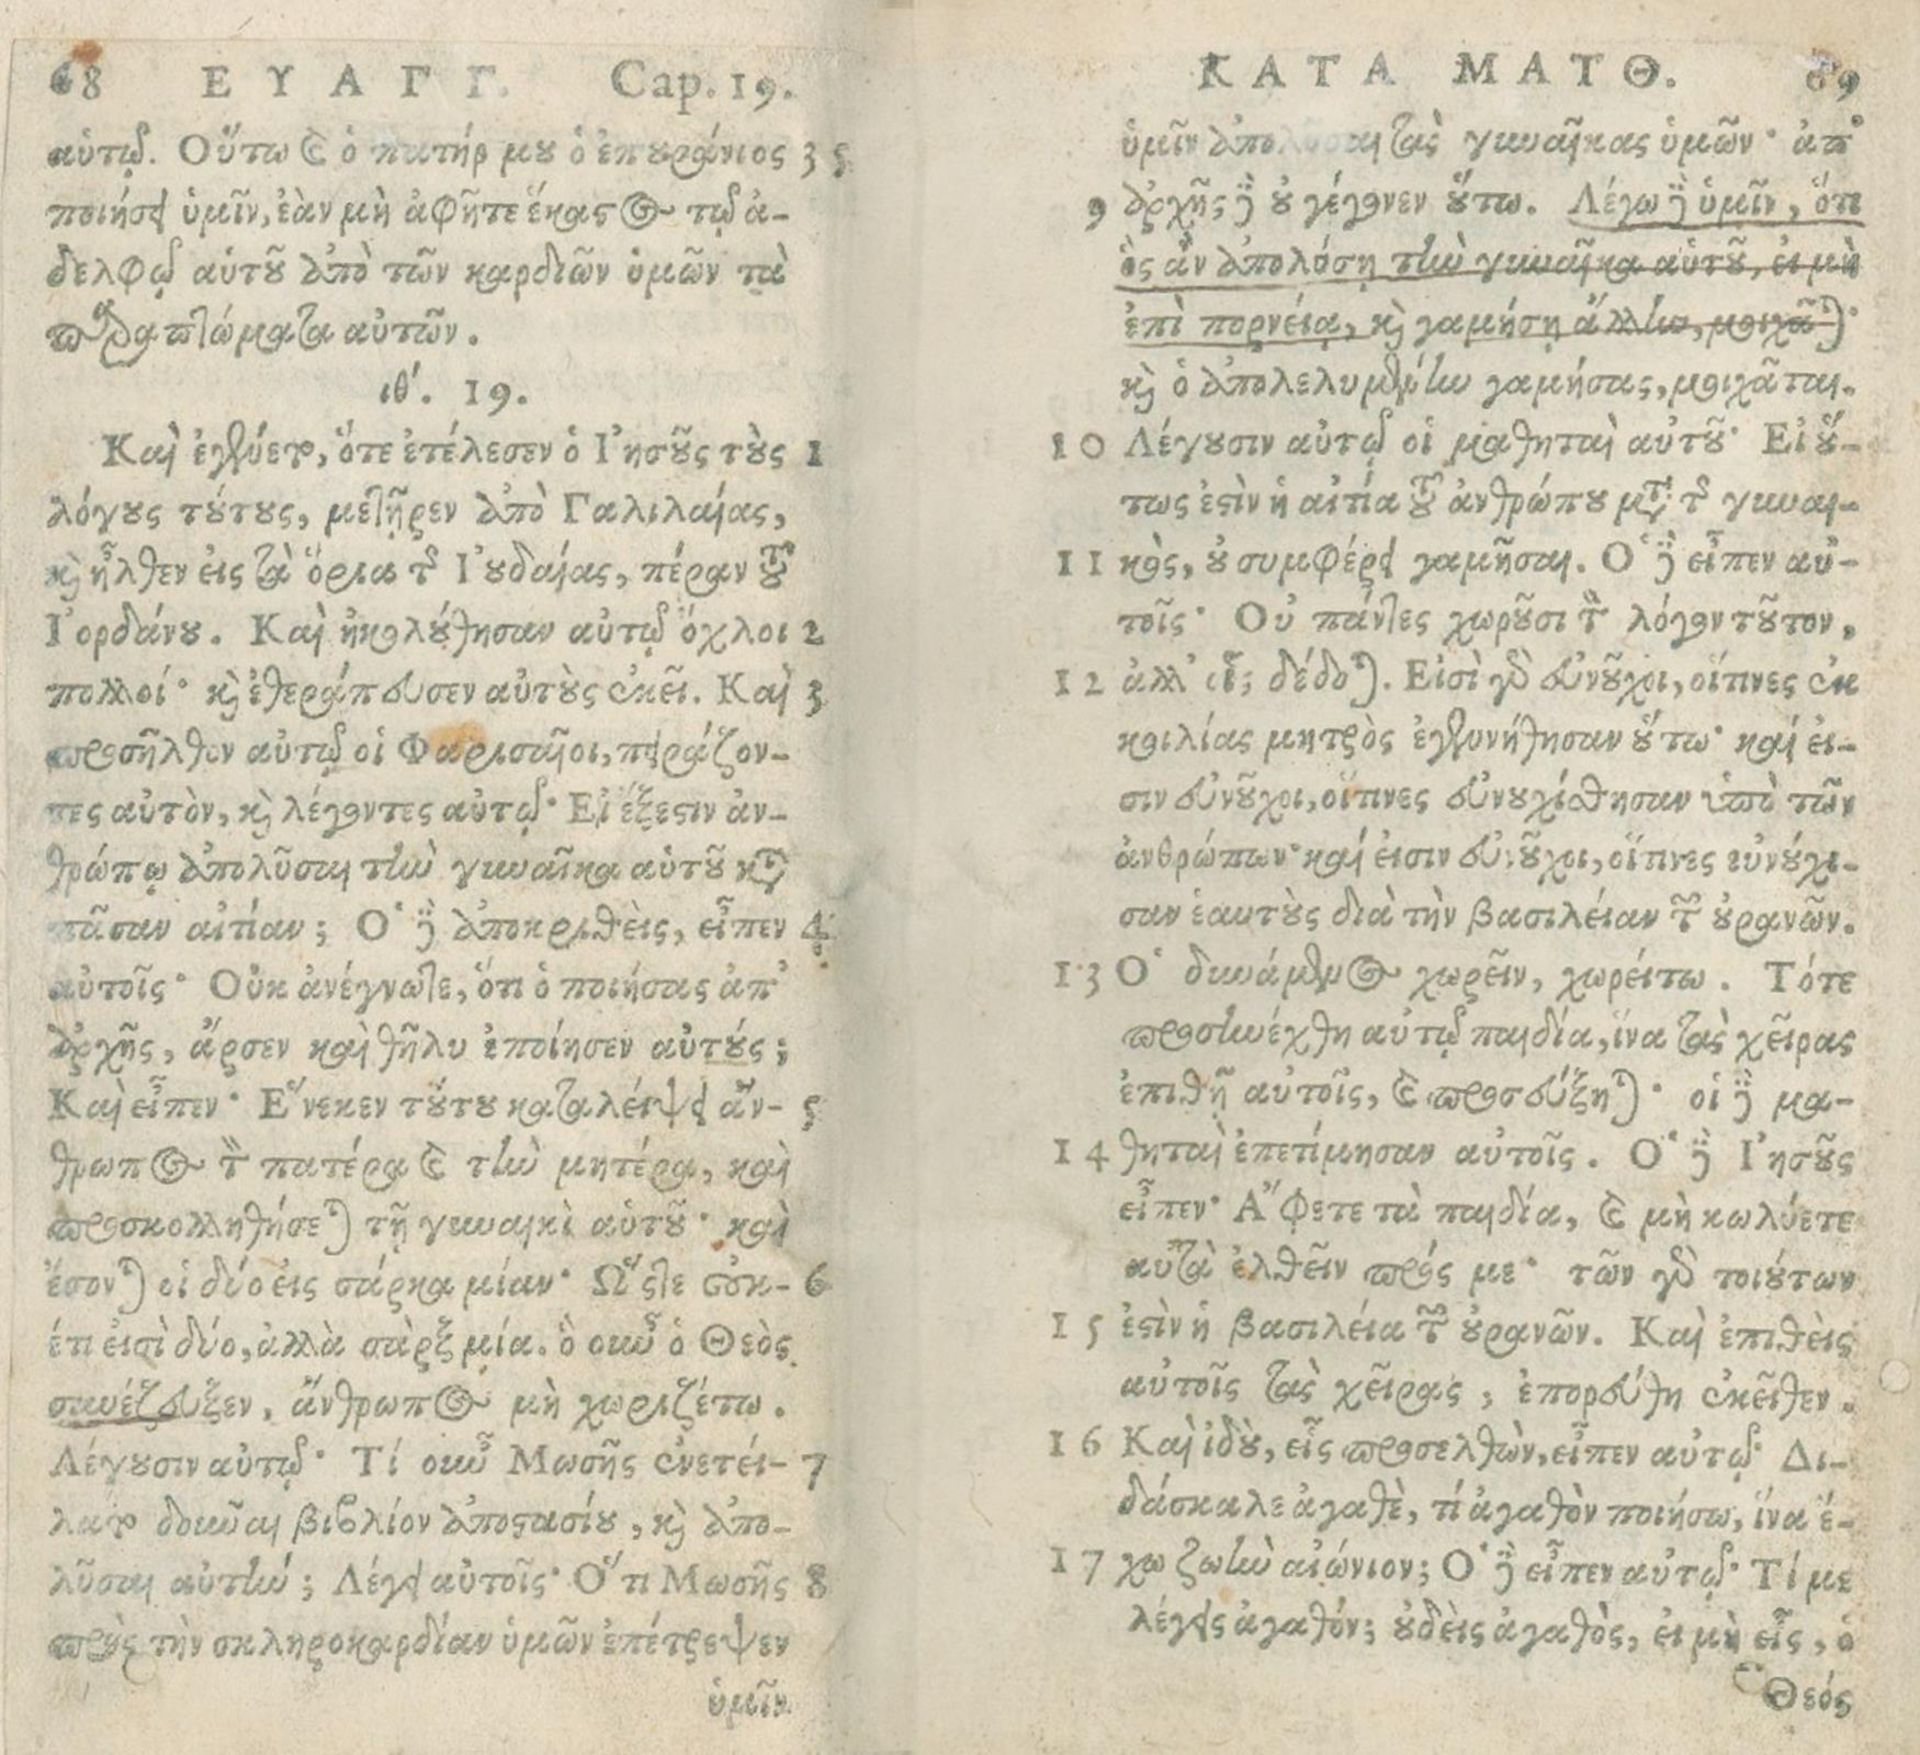 68 ΕΥΑΓΓ. Cap. 19.
αὐτῷ. Οὕτω καὶ ὁ πατήρ μου ὁ ἐπουράνιος 35
ποιήσει ὑμῖν, ἐὰν μὴ ἀφῆτε ἕκαστος τῷ ἀ-
δελφῷ αὐτοῦ ἀπὸ τῶν καρδιῶν ὑμῶν τὰ
παραπτώματα αὐτῶν.
ιθ΄. 19.
Καὶ ἐγένετο, ὅτε ἐτέλεσεν ὁ Ἰησοῦς τοὺς 1
λόγους τούτους, μετῆρεν ἀπὸ Γαλιλαίας,
καὶ ἦλθεν εἰς τὰ ὅρια τῆς Ἰουδαίας, πέραν τοῦ
Ἰορδάνου. Καὶ ἠκολούθησαν αὐτῷ ὄχλοι 2
πολλοί· καὶ ἐθεράπευσεν αὐτοὺς ἐκεῖ. Καὶ 3
προσῆλθον αὐτῷ οἱ Φαρισαῖοι, πειράζον-
τες αὐτὸν, καὶ λέγοντες αὐτῷ· Εἰ ἔξεστιν ἀν-
θρώπῳ ἀπολῦσαι τὴν γυναῖκα αὑτοῦ κατὰ
πᾶσαν αἰτίαν; Ὁ δὲ ἀποκριθεὶς, εἶπεν 4
αὐτοῖς· Οὐκ ἀνέγνωτε, ὅτι ὁ ποιήσας ἀπ᾽
ἀρχῆς, ἄρσεν καὶ θῆλυ ἐποίησεν αὐτούς;
Καὶ εἶπεν· Ἕνεκεν τούτου καταλείψει ἄν- 5
θρωπος τὸν πατέρα καὶ τὴν μητέρα, καὶ
προσκολληθήσεται τῇ γυναικὶ αὑτοῦ· καὶ
ἔσονται οἱ δύο εἰς σάρκα μίαν· Ὥστε οὐκ- 6
έτι εἰσὶ δύο, ἀλλὰ σὰρξ μία. ὃ οὖν ὁ Θεὸς
συνέζευξεν, ἄνθρωπος μὴ χωριζέτω.
Λέγουσιν αὐτῷ· Τί οὖν Μωσῆς ἐνετεί- 7
λατο δοῦναι βιβλίον ἀποστασίου, καὶ ἀπο-
λῦσαι αὐτήν; Λέγει αὐτοῖς· Ὅτι Μωσῆς 8
πρὸς τὴν σκληροκαρδίαν ὑμῶν ἐπέτρεψεν
ὑμῖν
ΚΑΤΑ ΜΑΤΘ. 69
ὑμῖν ἀπολῦσαι τὰς γυναῖκας ὑμῶν· ἀπ᾽
9 ἀρχῆς δὲ οὐ γέγονεν οὕτω. Λέγω δὲ ὑμῖν, ὅτι
ὃς ἂν ἀπολύσῃ τὴν γυναῖκα αὑτοῦ, εἰ μὴ
ἐπὶ πορνείᾳ, καὶ γαμήσῃ ἄλλην, μοιχᾶται·
καὶ ὁ ἀπολελυμένην γαμήσας, μοιχᾶται.
10 Λέγουσιν αὐτῷ οἱ μαθηταὶ αὐτοῦ· Εἰ οὕ-
τως ἐστὶν ἡ αἰτία τοῦ ἀνθρώπου μετὰ τῆς γυναι-
11 κὸς, οὐ συμφέρει γαμῆσαι. Ὁ δὲ εἶπεν αὐ-
τοῖς· Οὐ πάντες χωροῦσι τὸν λόγον τοῦτον,
12 ἀλλ᾽ οἷς δέδοται. Εἰσὶ γὰρ εὐνοῦχοι, οἵτινες ἐκ
κοιλίας μητρὸς ἐγεννήθησαν οὕτω· καί εἰ-
σιν εὐνοῦχοι, οἵτινες εὐνουχίσθησαν ὑπὸ τῶν
ἀνθρώπων· καί εἰσιν εὐνοῦχοι, οἵτινες εὐνούχι-
σαν ἑαυτοὺς διὰ τὴν βασιλείαν τῶν οὐρανῶν.
13 Ὁ δυνάμενος χωρεῖν, χωρείτω. Τότε
προσηνέχθη αὐτῷ παιδία, ἵνα τὰς χεῖρας
ἐπιθῇ αὐτοῖς, καὶ προσεύξηται· οἱ δὲ μα-
14 θηταὶ ἐπετίμησαν αὐτοῖς. Ὁ δὲ Ἰησοῦς
εἶπεν· Ἄφετε τὰ παιδία, καὶ μὴ κωλύετε
αὐτὰ ἐλθεῖν πρός με· τῶν γὰρ τοιούτων
15 ἐστὶν ἡ βασιλεία τῶν οὐρανῶν. Καὶ ἐπιθεὶς
αὐτοῖς τὰς χεῖρας, ἐπορεύθη ἐκεῖθεν.
16 Καὶ ἰδοὺ, εἷς προσελθὼν, εἶπεν αὐτῷ· Δι-
δάσκαλε ἀγαθὲ, τί ἀγαθὸν ποιήσω, ἵνα ἔ-
17 χω ζωὴν αἰώνιον; Ὁ δὲ εἶπεν αὐτῷ· Τί με
λέγεις ἀγαθόν; οὐδεὶς ἀγαθὸς, εἰ μὴ εἷς, ὁ
Θεός